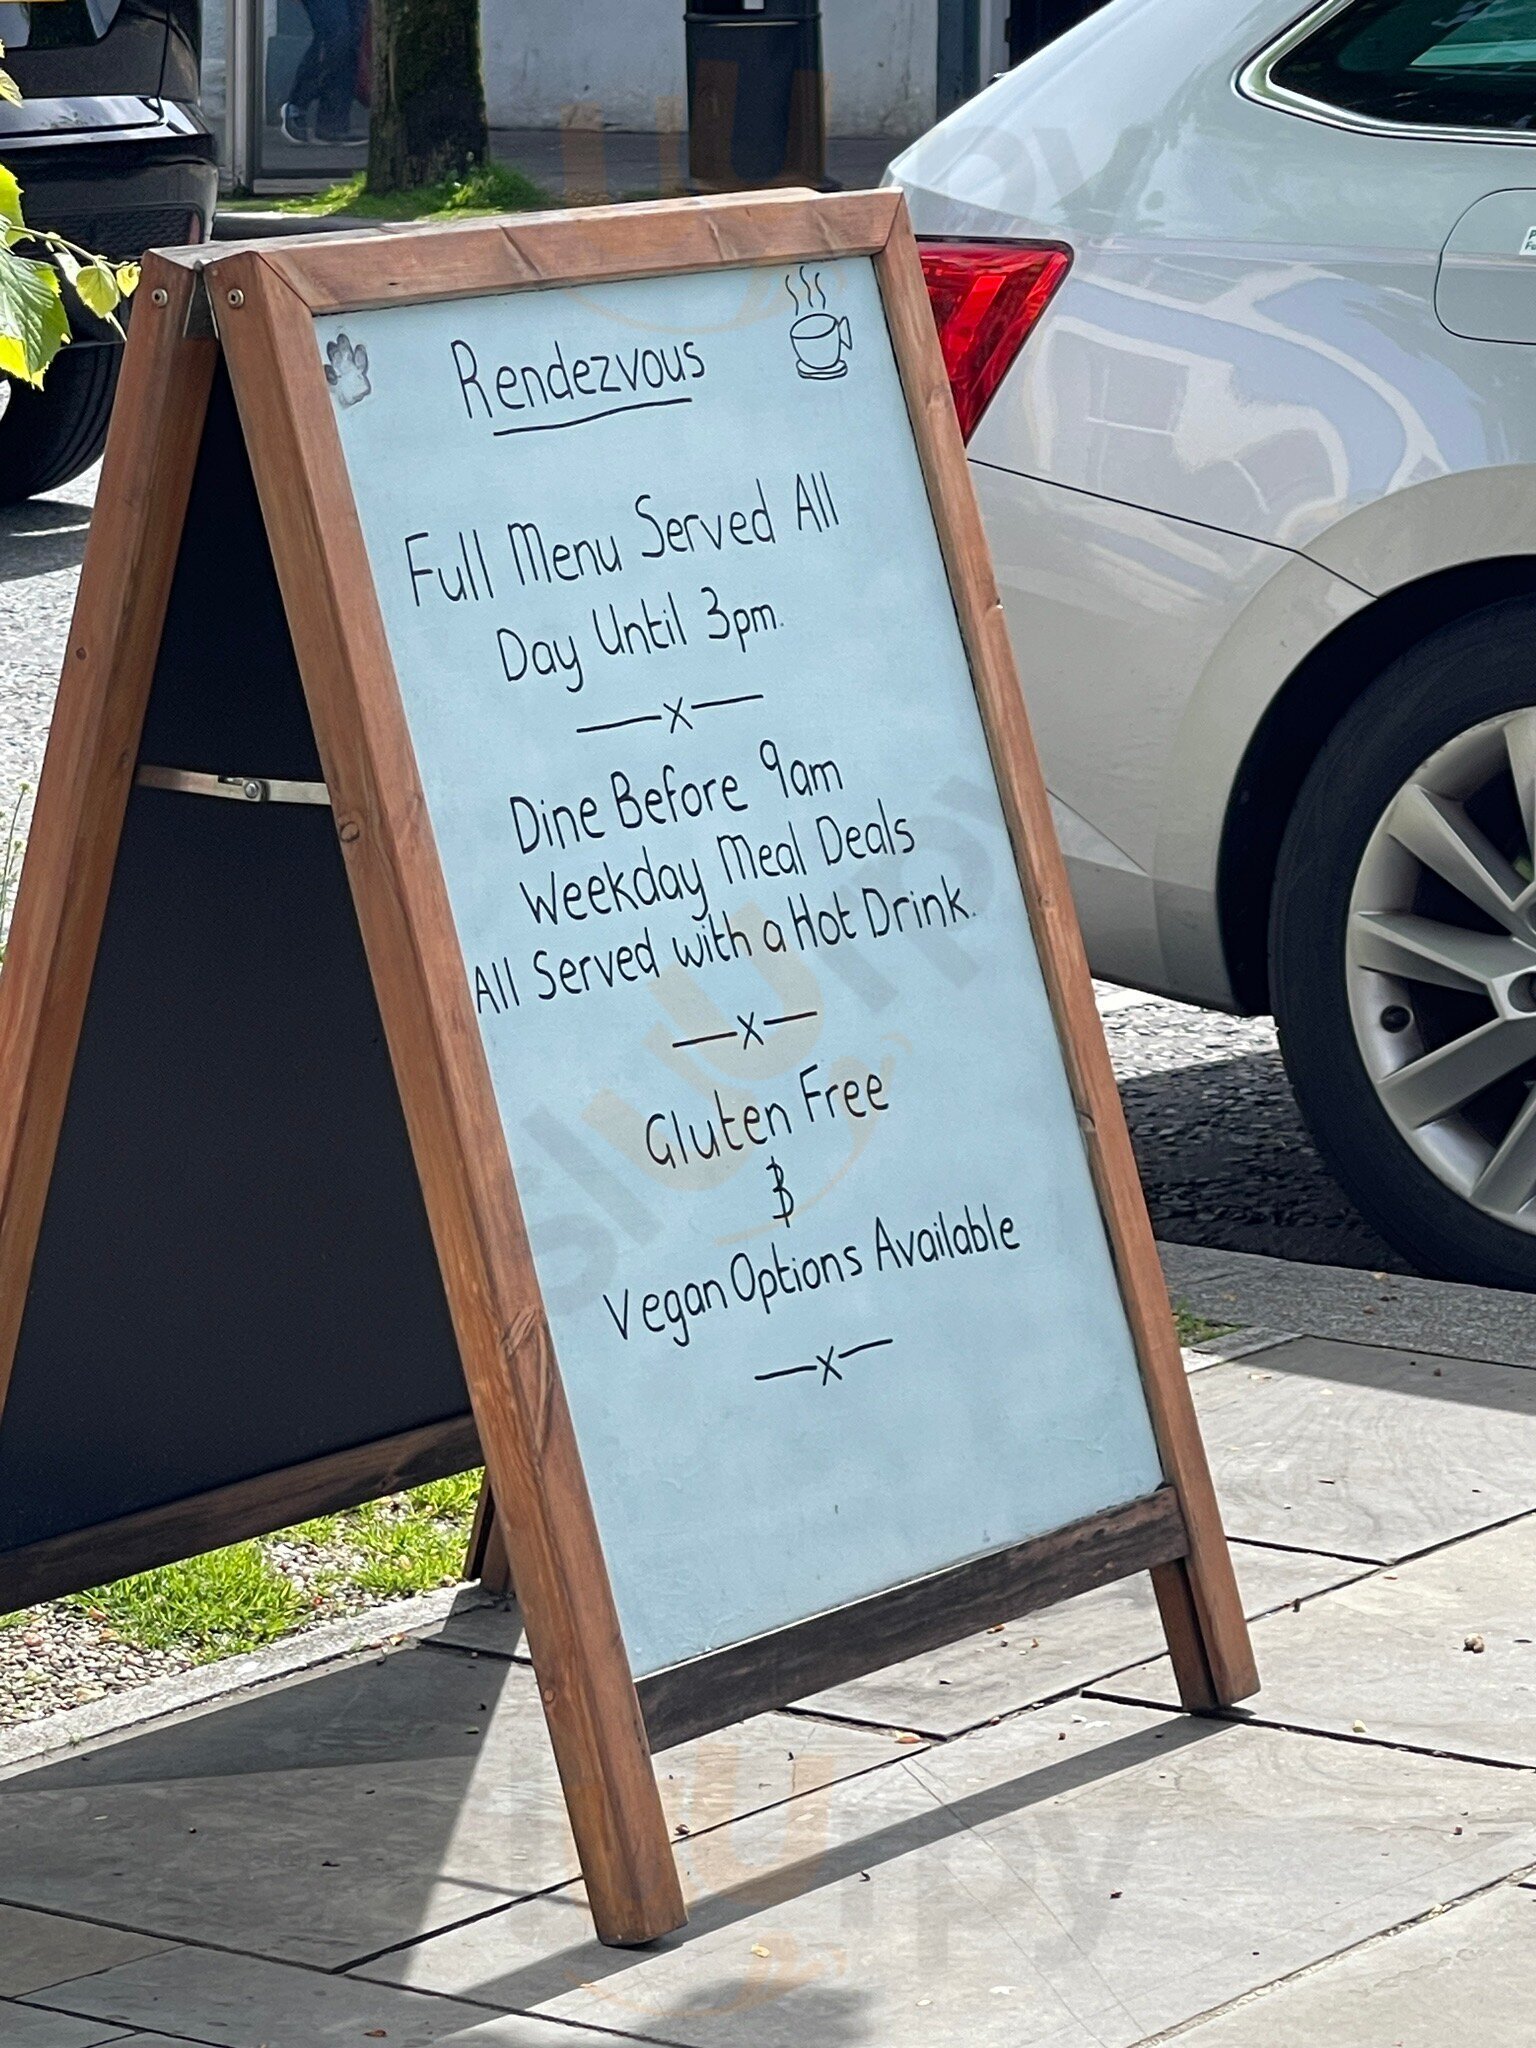 Rendezvous
Full Menu Served All
Day Until 3pm.
—x—
Dine Before 9am
Weekday Meal Deals
All Served with a Hot Drink.
—x—
Gluten Free
&
Vegan Options Available
—x—
slurpy